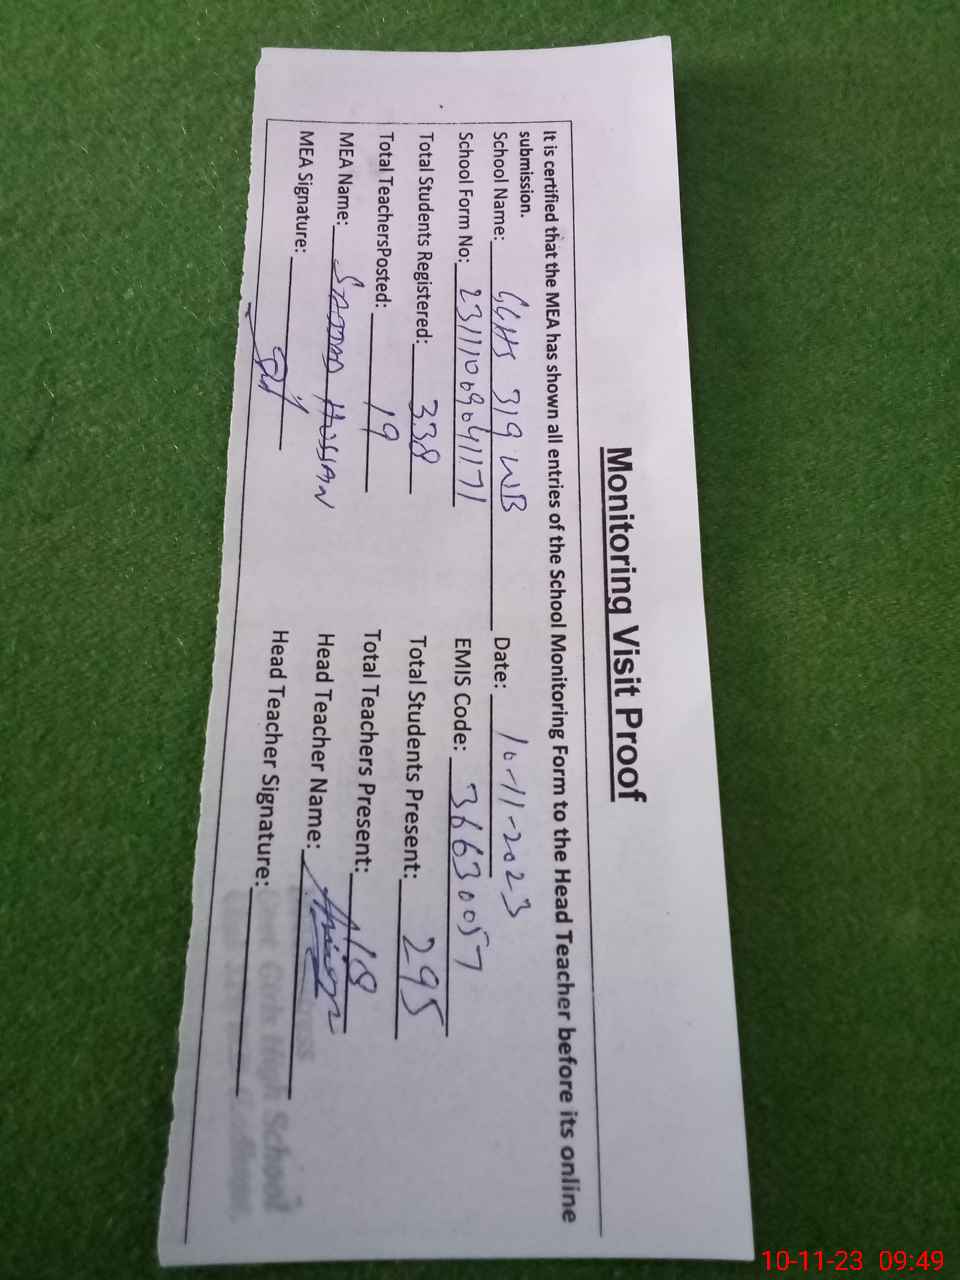 Monitoring Visit Proof
It is certified that the MEA has shown all entries of the School Monitoring Form to the Head Teacher before its online
submission.
School Name: GGHS 319 WB Date: 10-11-2023
School Form No: EMIS Code: 36630057
Total Students Registered: 338 Total Students Present: 295
Total TeachersPosted: 19 Total Teachers Present: 18
MEA Name: Head Teacher Name:
MEA Signature: Head Teacher Signature:
Girls High School
10-11-23 09:49